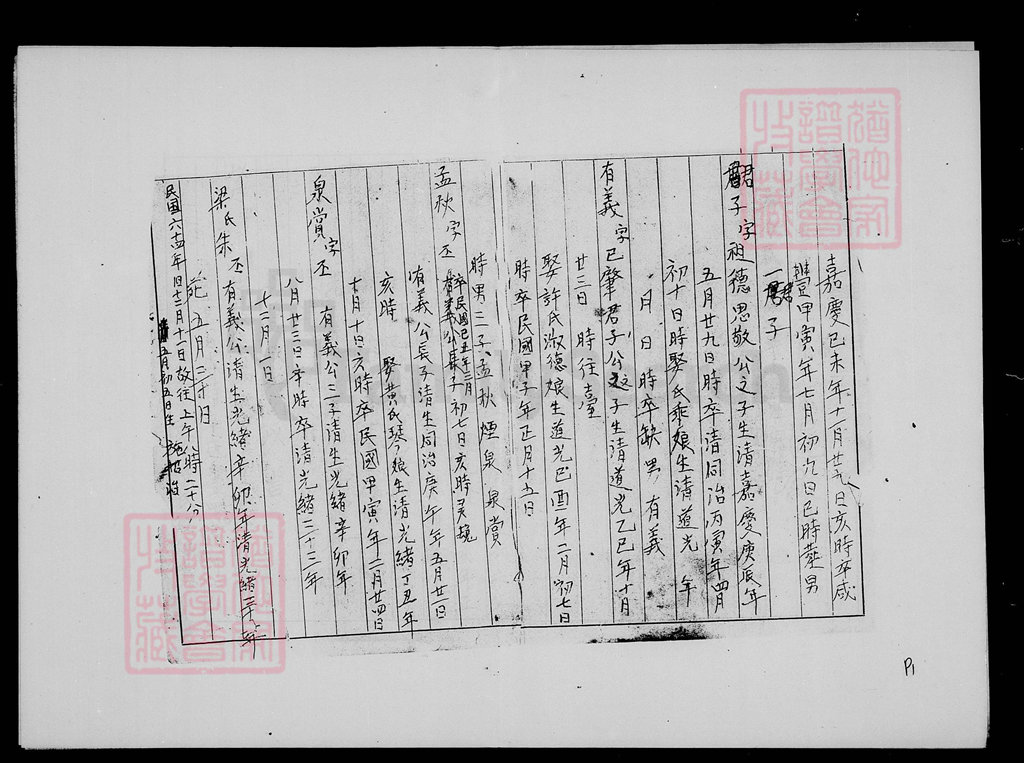 嘉慶己未年十一月廿九日亥時卒咸
豐甲寅年七月初九日巳時葬男
一君子
君子字祖德思敬公之子生清嘉慶庚辰年
五月廿九日時卒清同治丙寅年四月
初十日時娶氏乖娘生清道光 年
月 日 時卒缺男有義
有義字巳肇君子公之子生清道光乙巳年十月
廿三日 時往臺
娶許氏淑德娘生道光己酉年二月初七日
時卒民國甲子年正月十五日
時男三子孟秋煙泉 泉賞
卒民國己丑年三月初七日亥時
孟秋字丕有義公長子清生同治庚午年五月廿一日
亥時 娶黃氏琴娘生清光緒丁丑年
十月十日亥時卒民國甲寅年二月廿四日
泉賞字丕 有義公三子清生光緒辛卯年
八月廿三日辛時卒清光緒三十三年
十二月一日
梁氏朱丕有義公清生光緒辛卯年清光緒三十 年
死五月二十日
民國六十四年旧十二月十一日故往上午八時二十分
五月初五日生
猶他家
譜學會
收藏
猶他家
譜學會
收藏
P1